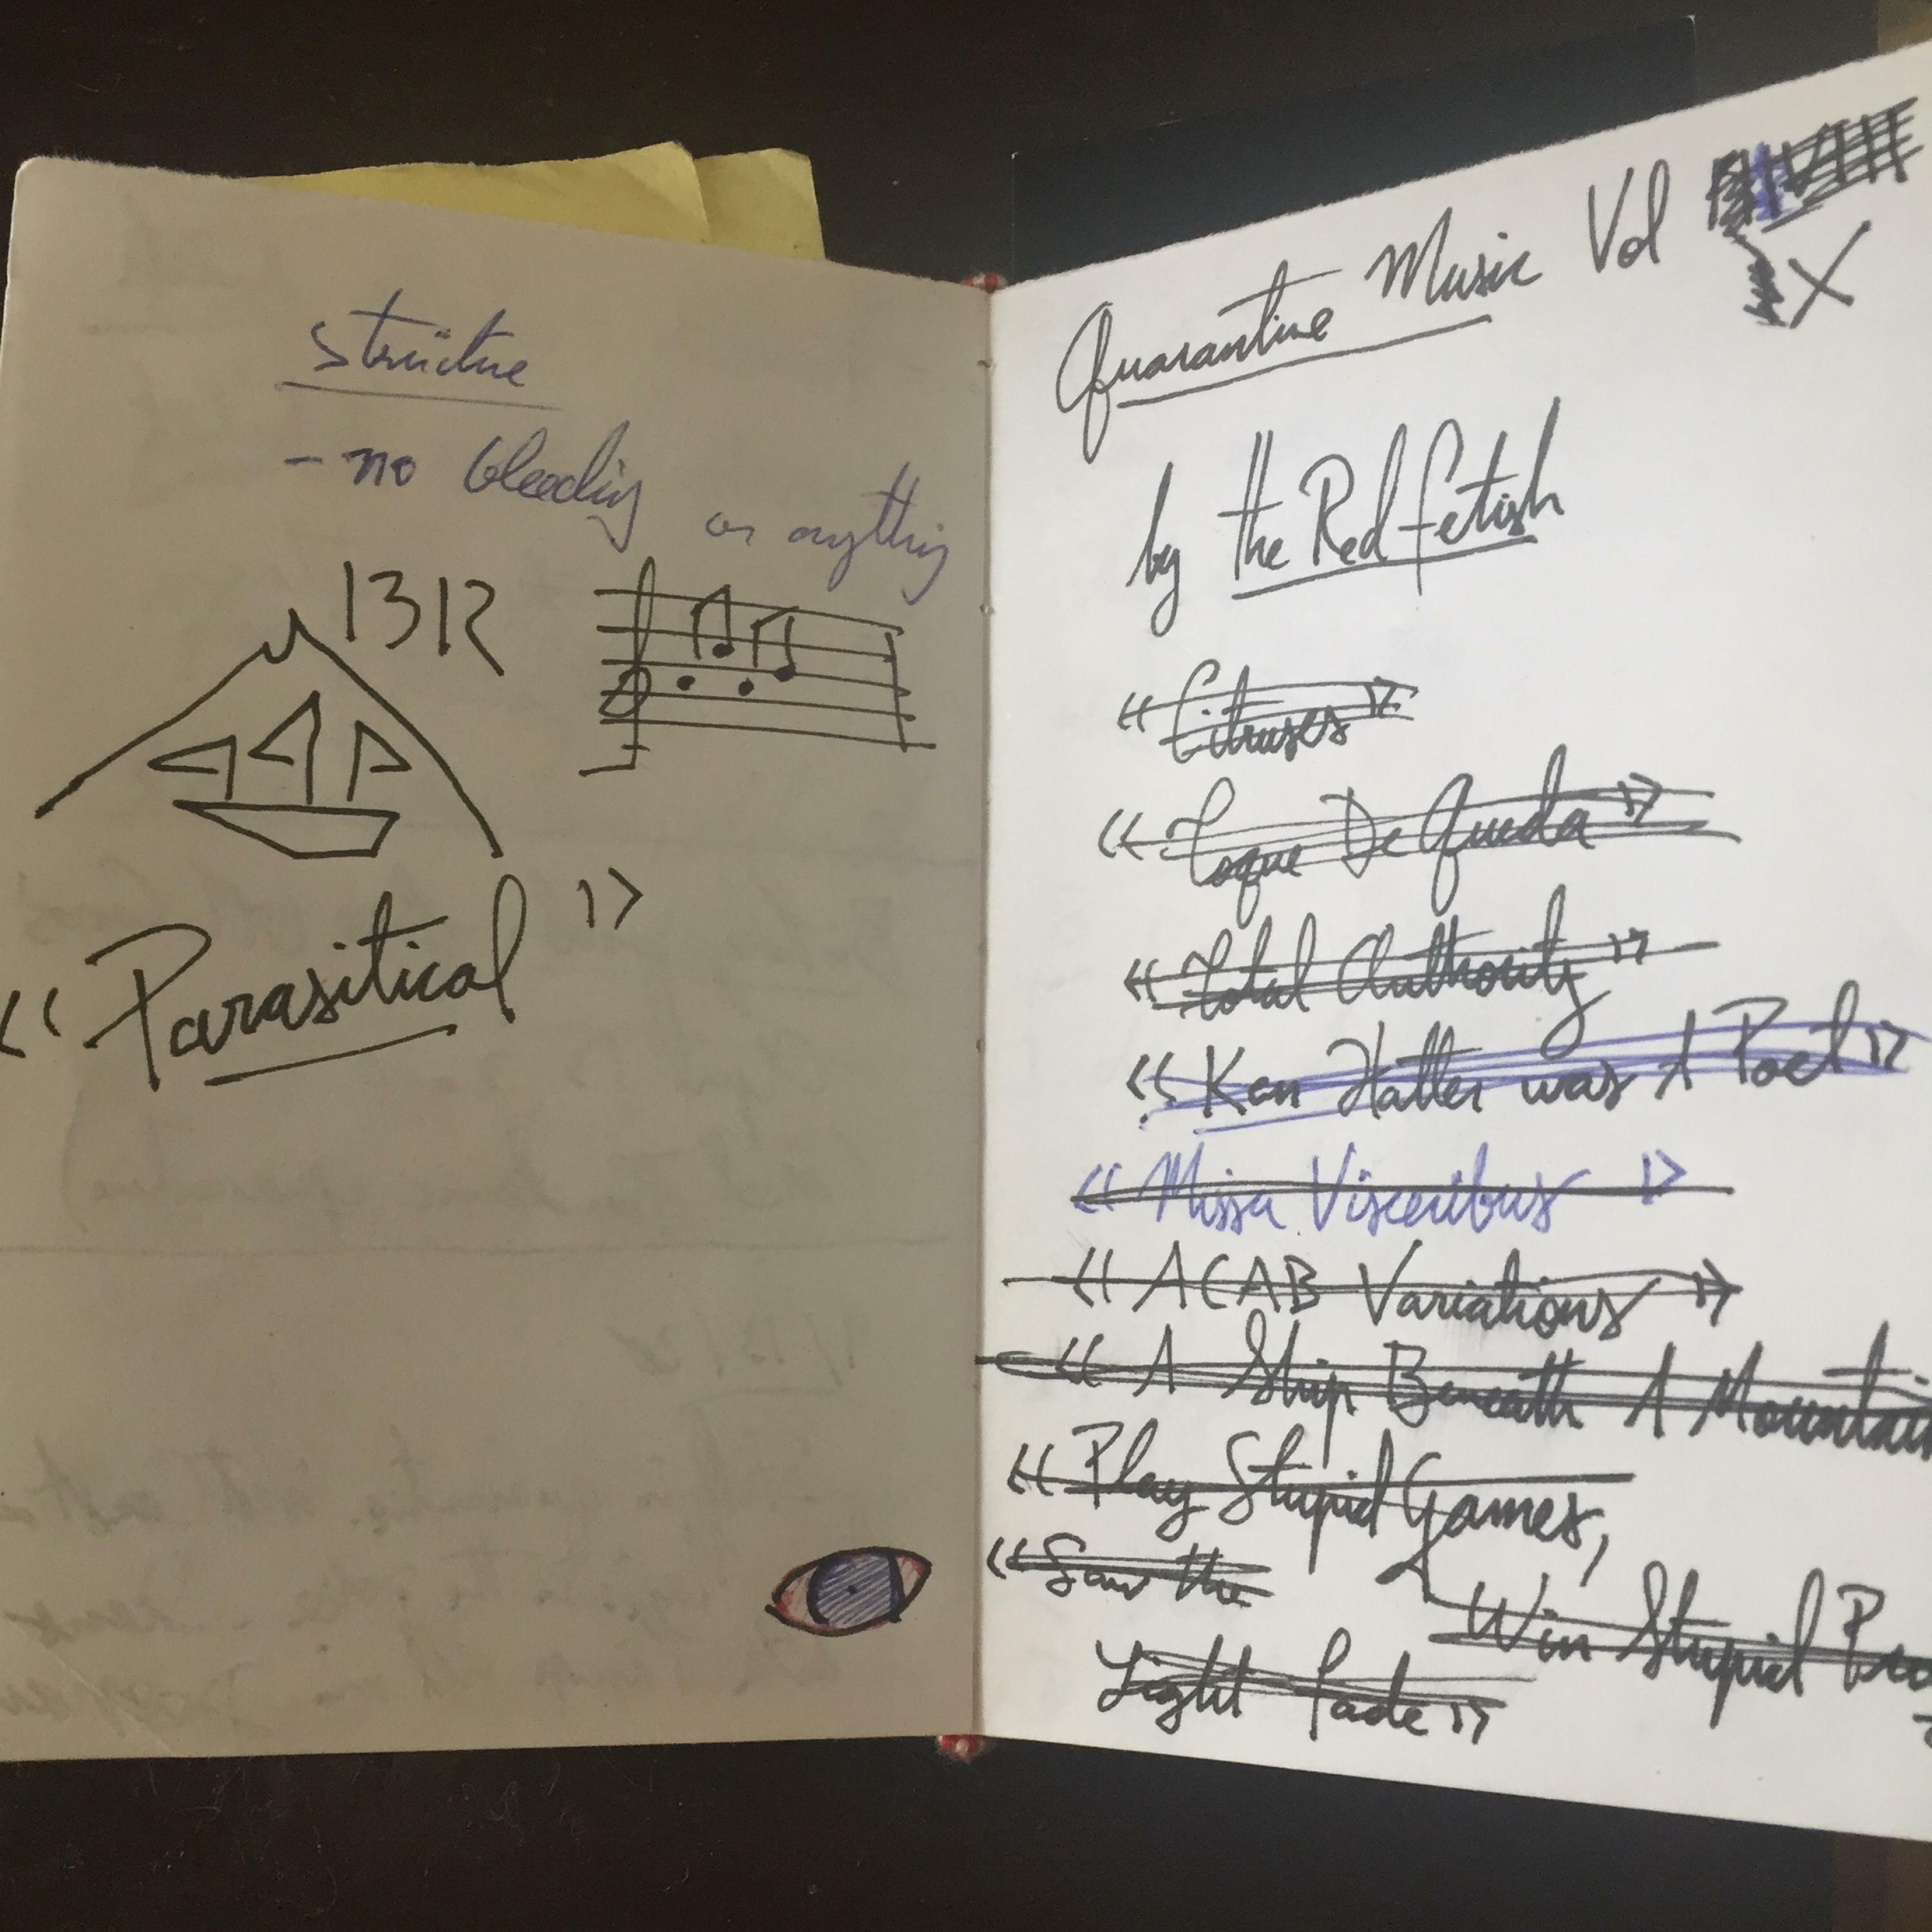 Structure
- no bleeding or anything
1312
« Parasitical »
Quarantine Music Vol
X
by the Red Fetish
« Citruses »
« Toque De Queda »
« Total Authority »
« Ken Hatter was A Poet »
« Missa Visceribus »
« ACAB Variations »
« A Ship Beneath A Mountain
« Play Stupid Games,
Win Stupid
« Saw the
Light Fade »